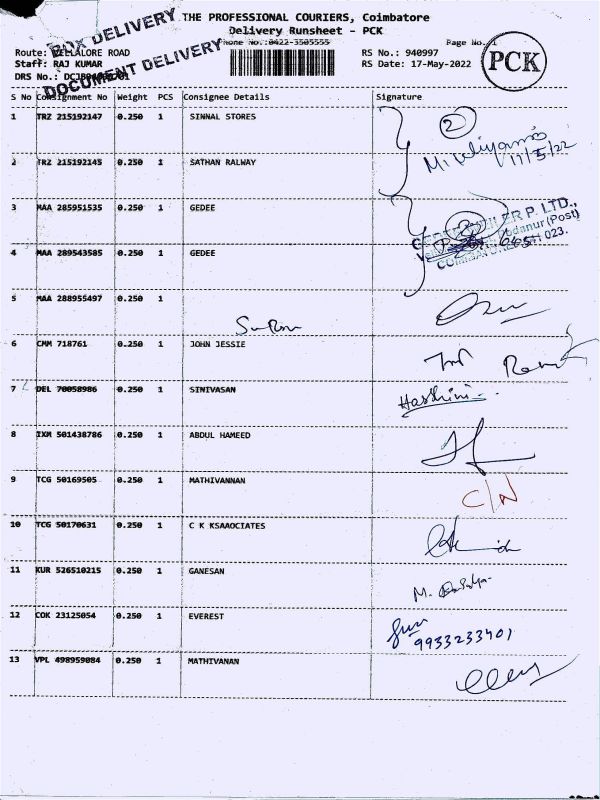 BOX DELIVERY
DOCUMENT DELIVERY
THE PROFESSIONAL COURIERS, Coimbatore
Delivery Runsheet - PCK
Phone No.:0422-3505555
Page No. 1
Route: VELLALORE ROAD
RS No.: 940997
Staff: RAJ KUMAR
RS Date: 17-May-2022
DRS No.:
PCK
S No Consignment No Weight PCS Consignee Details Signature
1 TRZ 215192147 0.250 1 SINNAL STORES 2
17/5/22
2 TRZ 215192145 0.250 1 SATHAN RALWAY
3 MAA 285951535 0.250 1 GEDEE 2
P. LTD.,
Podanur (Post)
4 MAA 289543585 0.250 1 GEDEE
023.
5 MAA 288955497 0.250 1
6 CMM 718761 0.250 1 JOHN JESSIE
7 DEL 70058986 0.250 1 SINIVASAN Hashini
8 IXM 501438786 0.250 1 ABDUL HAMEED
9 TCG 50169505 0.250 1 MATHIVANNAN C/N
10 TCG 50170631 0.250 1 C K KSAAOCIATES
11 KUR 526510215 0.250 1 GANESAN
12 COK 23125054 0.250 1 EVEREST
9933233401
13 VPL 498959084 0.250 1 MATHIVANAN